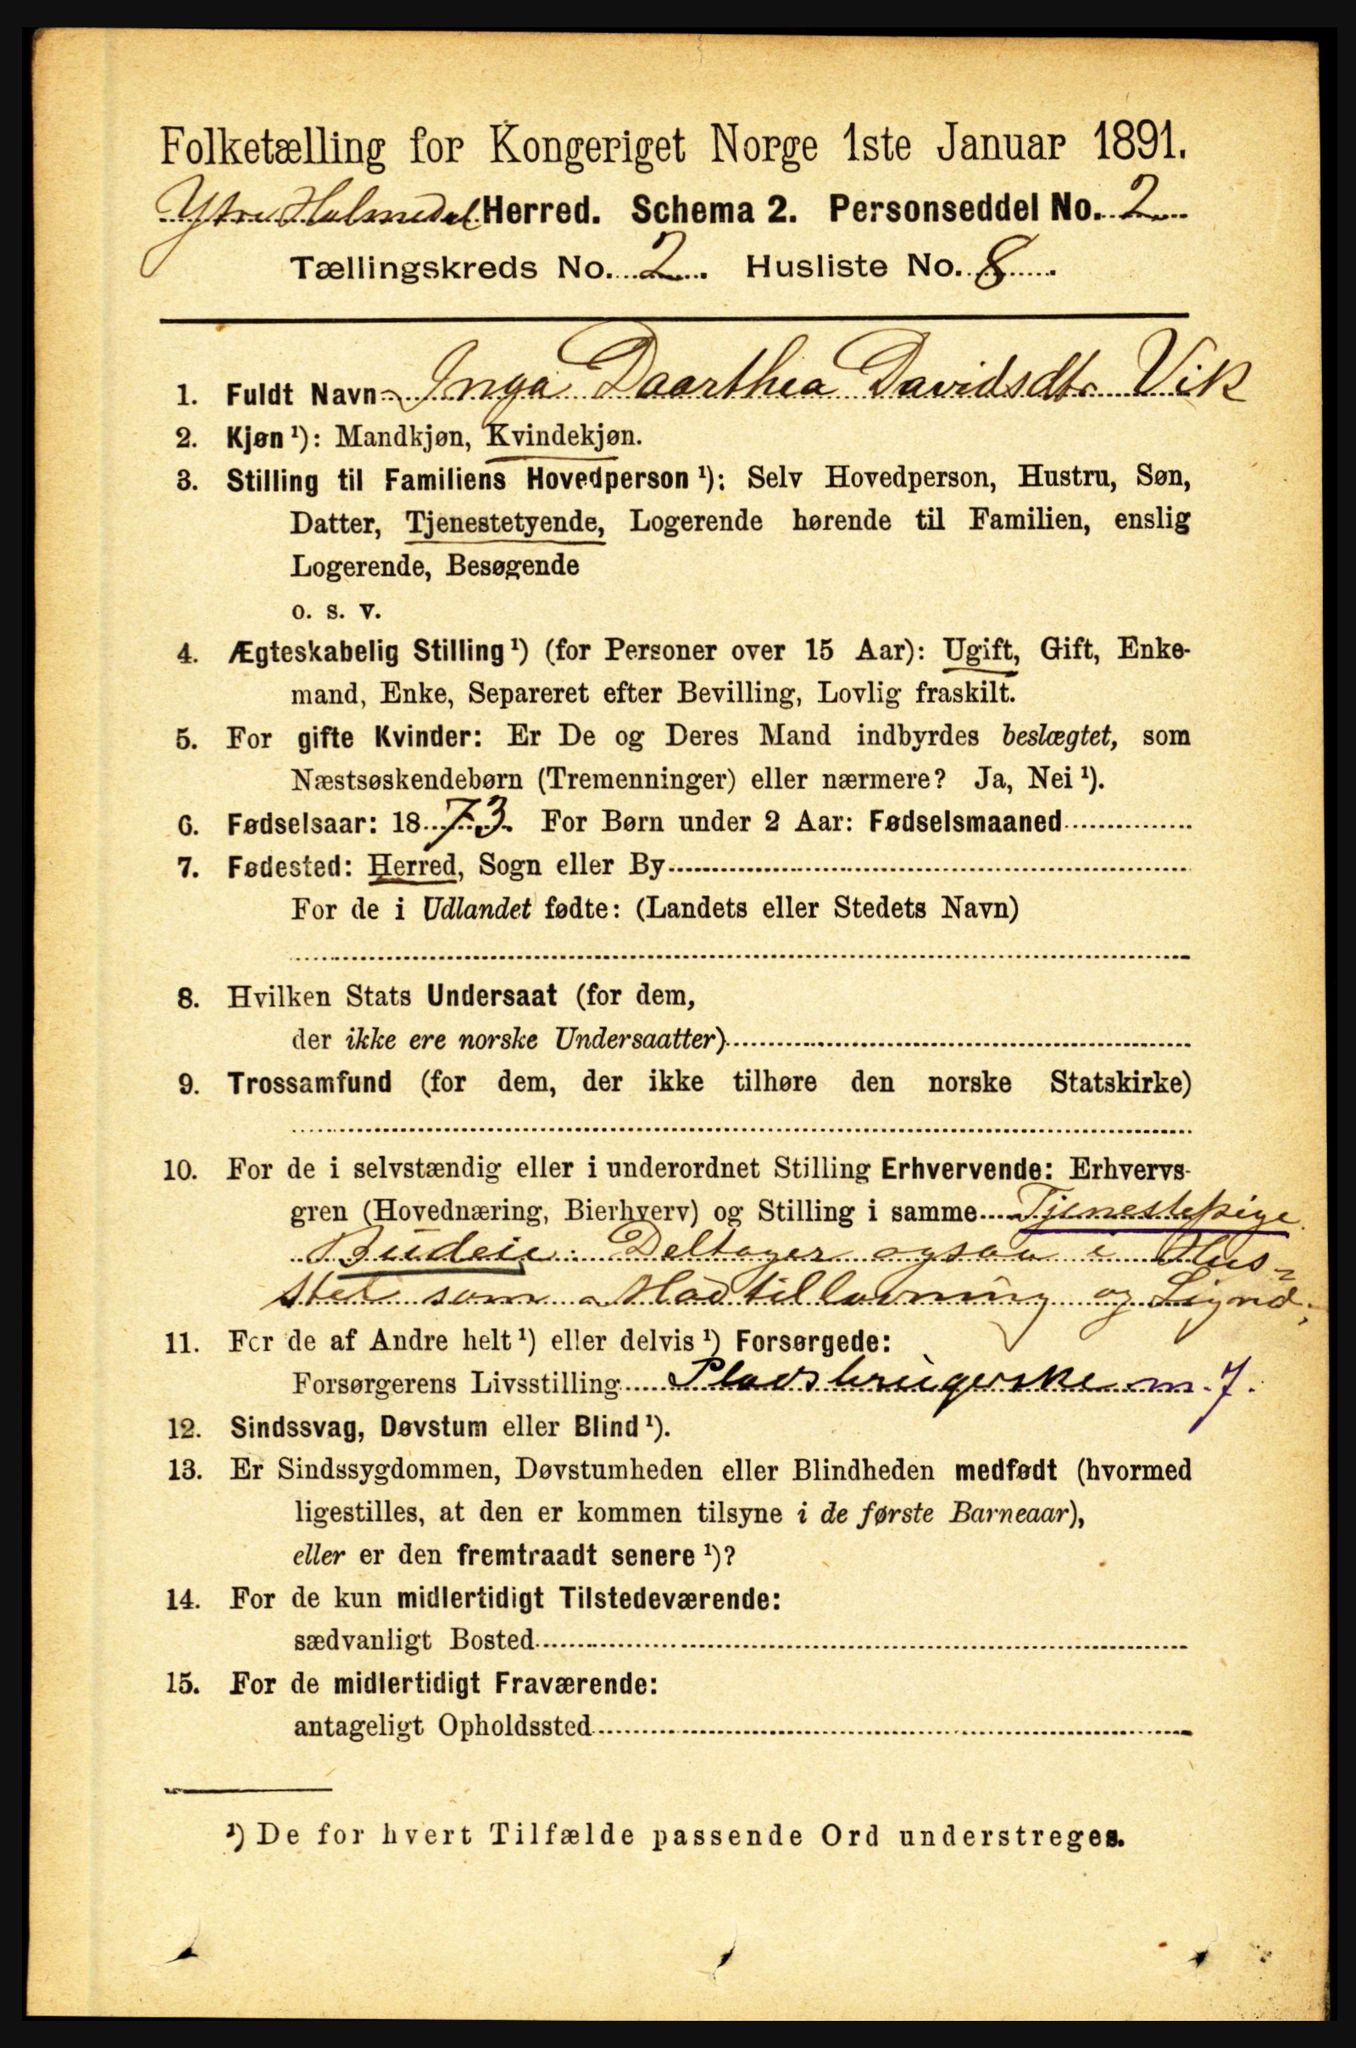 Folketælling for Kongeriget Norge 1ste Januar 1891.
Ytre Holmedal Herred. Schema 2. Personseddel No. 2
Tællingskreds No. 2. Husliste No. 8
1. Fuldt Navn Inga Daarthea Davidsdtr Vik
2. Kjøn ¹): Mandkjøn, Kvindekjøn.
3. Stilling til Familiens Hovedperson ¹): Selv Hovedperson, Hustru, Søn,
Datter, Tjenestetyende, Logerende hørende til Familien, enslig
Logerende, Besøgende
o. s. v.
4. Ægteskabelig Stilling ¹) (for Personer over 15 Aar): Ugift, Gift, Enke-
mand, Enke, Separeret efter Bevilling, Lovlig fraskilt.
5. For gifte Kvinder: Er De og Deres Mand indbyrdes beslægtet, som
Næstsøskendebørn (Tremenninger) eller nærmere? Ja, Nei ¹).
6. Fødselsaar: 1873. For Børn under 2 Aar: Fødselsmaaned
7. Fødested: Herred, Sogn eller By
For de i Udlandet fødte: (Landets eller Stedets Navn)
8. Hvilken Stats Undersaat (for dem,
der ikke ere norske Undersaatter)
9. Trossamfund (for dem, der ikke tilhøre den norske Statskirke)
10. For de i selvstændig eller i underordnet Stilling Erhvervende: Erhvervs-
gren (Hovednæring, Bierhverv) og Stilling i samme Tjenestepige
Budeie. Deltager ogsaa i Hus-
stel som Madtillavning og Lignd.
11. For de af Andre helt ¹) eller delvis ¹) Forsørgede:
Forsørgerens Livsstilling Pladsbrugerske m. 7.
12. Sindssvag, Døvstum eller Blind ¹).
13. Er Sindssygdommen, Døvstumheden eller Blindheden medfødt (hvormed
ligestilles, at den er kommen tilsyne i de første Barneaar),
eller er den fremtraadt senere ¹)?
14. For de kun midlertidigt Tilstedeværende:
sædvanligt Bosted
15. For de midlertidigt Fraværende:
antageligt Opholdssted
¹) De for hvert Tilfælde passende Ord understreges.